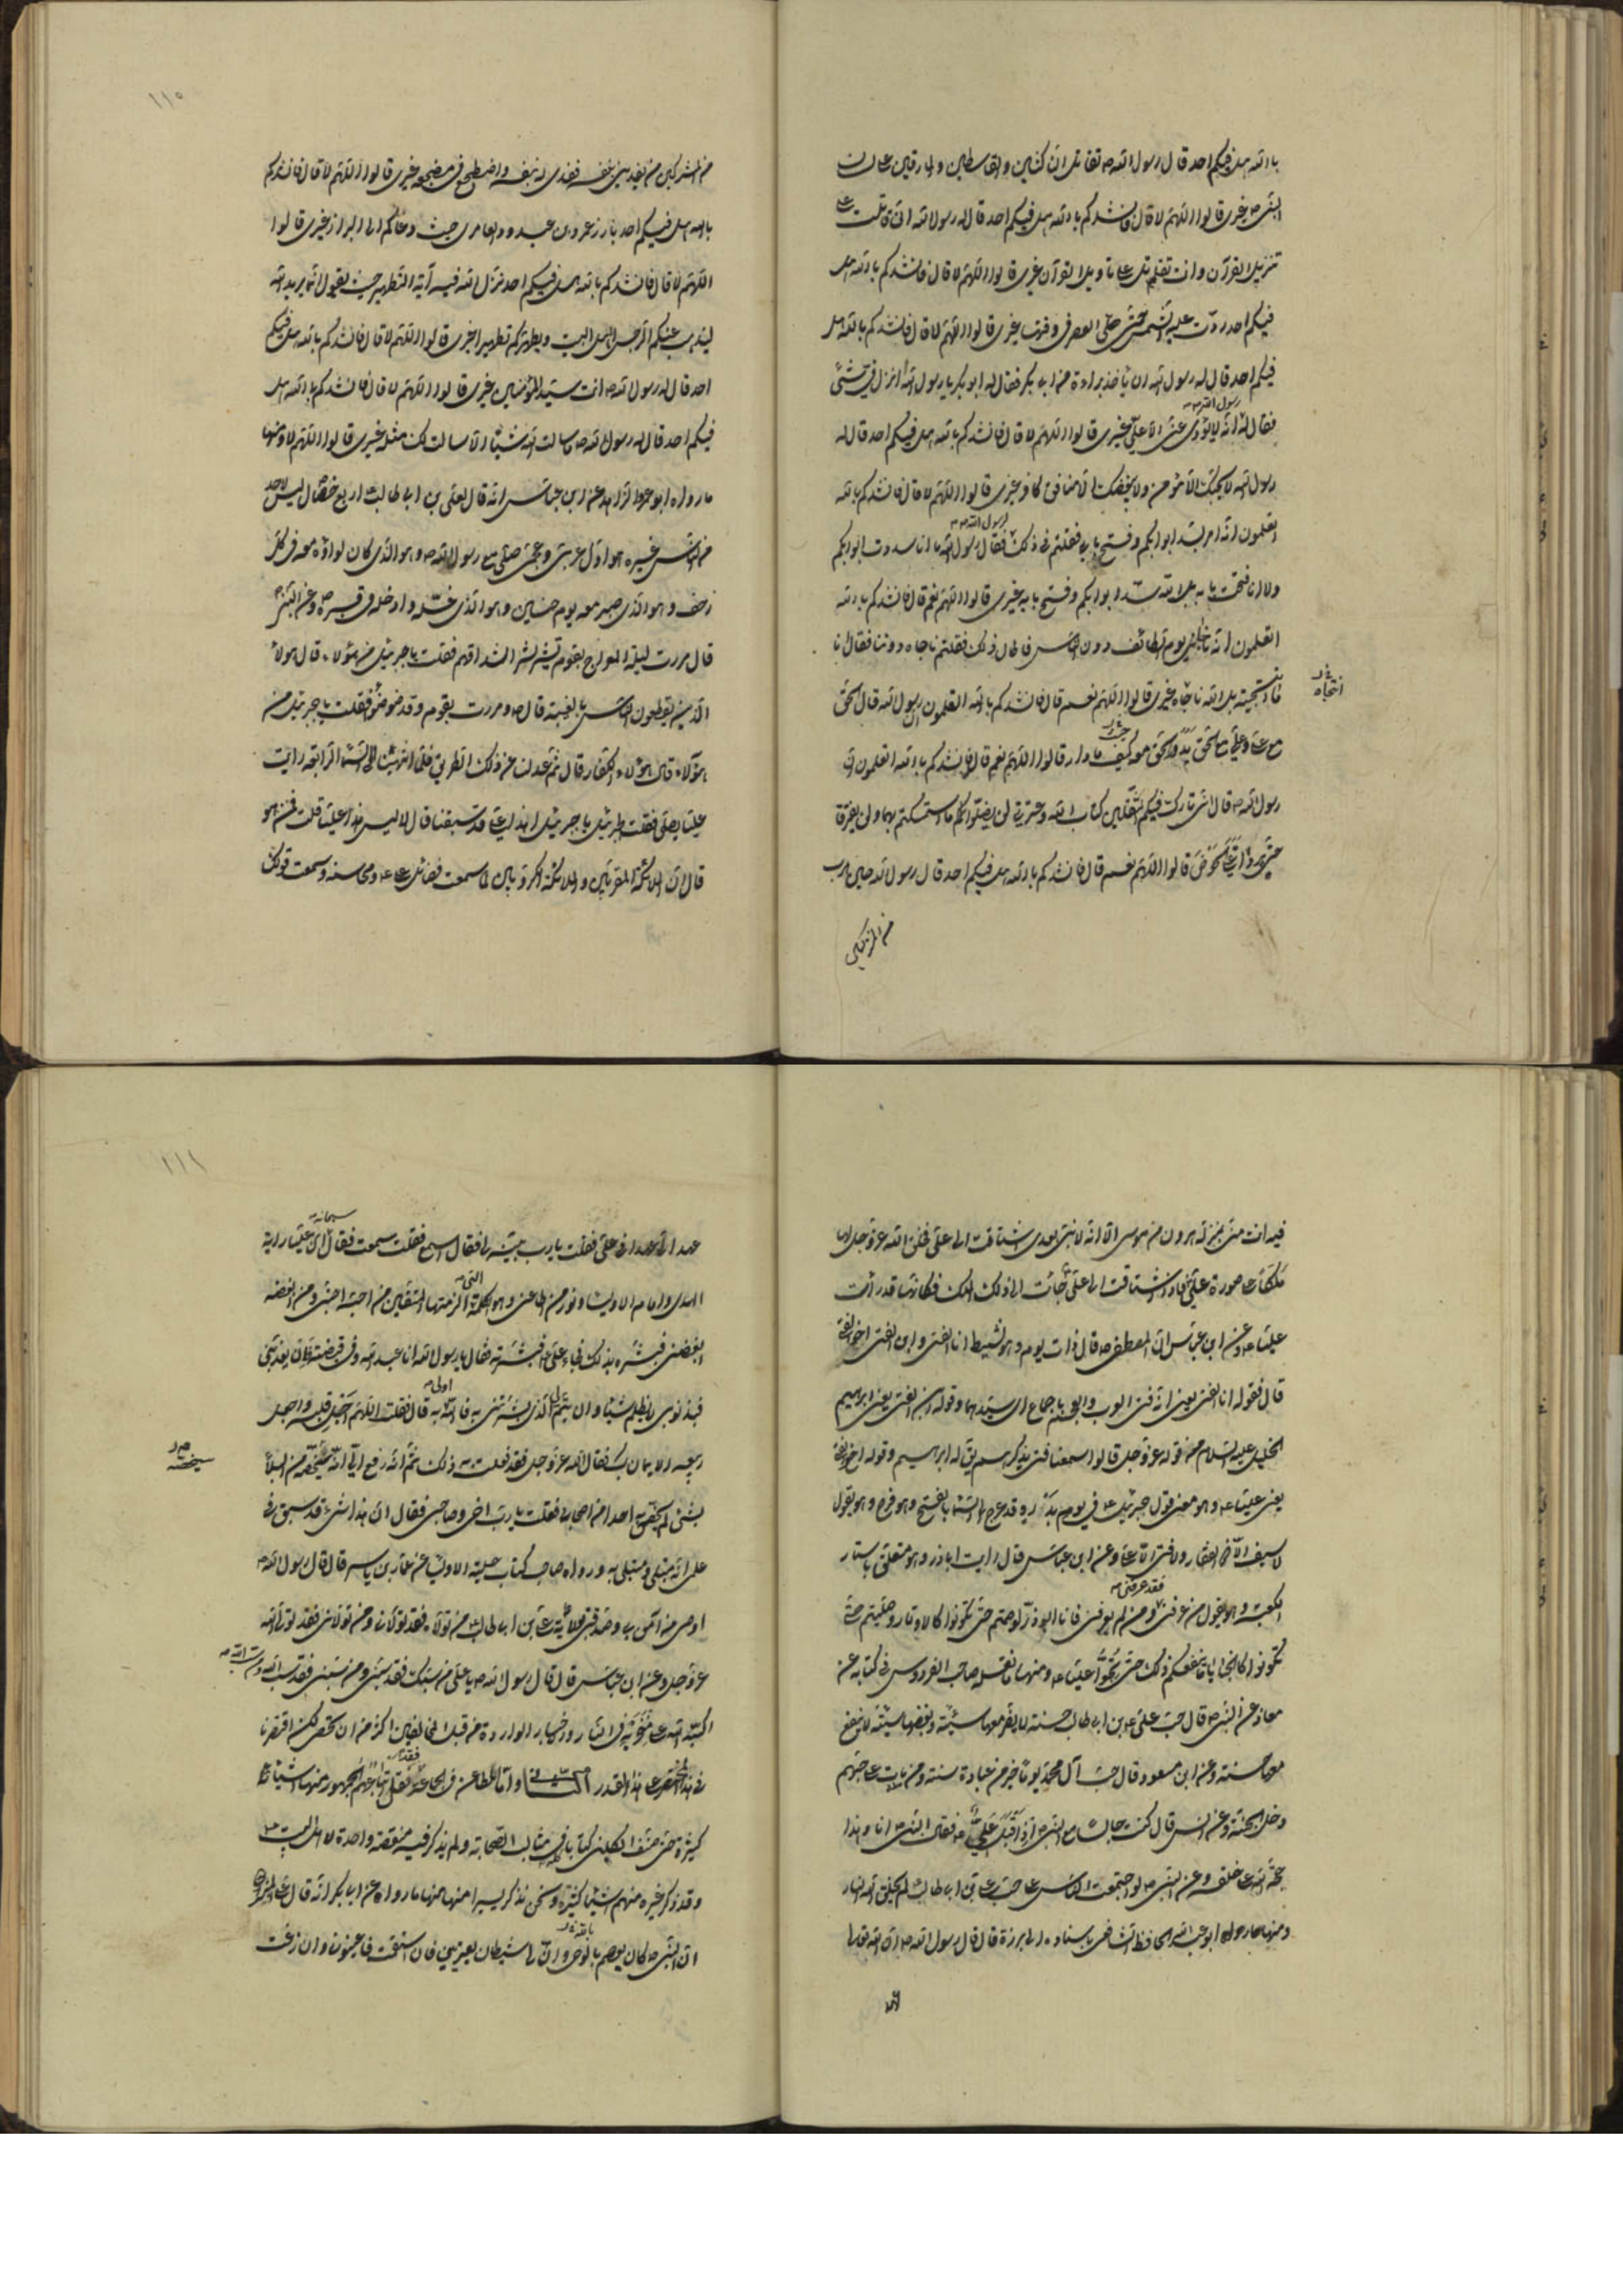 بالله هل فيكم احد قال رسول الله ص تقاتل الناكثين والقاسطين والمارقين على لسان
النبي ص غيري قالوا اللهم لا قال فانشدكم بالله هل فيكم احد قال له رسول الله اني قاتلت على
تنزيل القرآن وانت تقاتل على تاويل القرآن غيري قالوا اللهم لا قال فانشدكم بالله هل
فيكم احد ردت عليه الشمس حتى صلى العصر في وقتها غيري قالوا اللهم لا قال فانشدكم بالله هل
فيكم احد قال له رسول الله ان ياخذ براءة من ابي بكر فقال له ابو بكر يا رسول الله أنزل في شئ
رسول الله ص
فقال له انه لا يؤدي عني الا علي غيري قالوا اللهم لا قال فانشدكم بالله هل فيكم احد قال له
رسول الله لا يحبك الا مؤمن ولا يبغضك الا منافق كافر غيري قالوا اللهم لا قال فانشدكم بالله
اتعلمون انه امر بسد ابوابكم وفتح بابي فقلتم في ذلك فقال رسول الله ما انا سددت ابوابكم
ولا انا فتحت بابه بل الله سد ابوابكم وفتح بابه غيري قالوا اللهم نعم قال فانشدكم بالله
اتعلمون انه ناجاني يوم الطائف دون الناس فاطال ذلك فقلتم ناجاه دوننا فقال انا
ما انتجيته بل الله ناجاه غيري قالوا اللهم نعم قال فانشدكم بالله اتعلمون ان رسول الله قال الحق
انتجاه
مع علي وعلي مع الحق يدور الحق معه كيف ما دار قالوا اللهم نعم قال فانشدكم بالله اتعلمون ان
رسول الله ص قال اني تارك فيكم الثقلين كتاب الله وعترتي لن تضلوا ما استمسكتم بهما ولن يفترقا
حتى يردا علي الحوض قالوا اللهم نعم قال فانشدكم بالله هل فيكم احد قال رسول الله حين هرب
من المشركين
١١٥
من المشركين من يفديني بنفسه ففدى له بنفسه واضطجع في مضجعه غيري قالوا اللهم لا قال فانشدكم
بالله هل فيكم احد بارز عمرو بن عبد ود العامري حيث دعاكم الى البراز غيري قالوا
اللهم لا قال فانشدكم بالله هل فيكم احد نزل الله فيه آية التطهير حيث يقول انما يريد الله
ليذهب عنكم الرجس اهل البيت ويطهركم تطهيرا غيري قالوا اللهم لا قال فانشدكم بالله هل فيكم
احد قال له رسول الله ص انت سيد المؤمنين غيري قالوا اللهم لا قال فانشدكم بالله هل
فيكم احد قال له رسول الله ص ما سالت الله شيئا الا سالت لك مثله غيري قالوا اللهم لا ومنها
ما رواه ابو عمرو الزاهد عن ابن عباس انه قال لعلي بن ابي طالب اربع خصال ليس لاحد
من الناس غيره هو اول عربي وعجمي صلى مع رسول الله ص وهو الذي كان لواؤه معه في كل
زحف وهو الذي صبر معه يوم حنين وهو الذي غسله وادخله في قبره ص وعن النبي ص
قال مررت ليلة المعراج بقوم تشرشر اشداقهم فقلت يا جبرئيل من هؤلاء قال هؤلاء
الذين يقطعون الناس بالغيبة قال ص ومررت بقوم وقد ضوضؤا فقلت يا جبرئيل من
هؤلاء قال هؤلاء الكفار قال ثم عدلنا عن ذلك الطريق فلما انتهينا الى السماء الرابعة رايت
عليا يصلي فقلت لجبرئيل يا جبرئيل اهذا علي قد سبقنا قال لا ليس هذا عليا قلت فمن هو
قال ان الملائكة المقربين والملائكة الكروبين لما سمعت فضائل علي ع ومحاسنه وسمعت قولك
فيه انت مني بمنزلة هرون من موسى الا انه لا نبي بعدي اشتاقت الى علي فخلق الله عز وجل لها
ملكا على صورة علي فاذا اشتاقت الى علي جائت الى ذلك الملك فكانها قد رأت
عليا ع وعن ابن عباس ان المصطفى ص قال ذات يوم وهو نشيط انا الفتى وابن الفتى اخو الفتى
قال فقوله انا الفتى يعني انه فتى العرب والعجم باجماع اي سيدهما وقوله ابن الفتى يعني ابراهيم
الخليل عليه السلام من قوله عز وجل قالوا سمعنا فتى يذكرهم يقال له ابراهيم وقوله اخو الفتى
يعني عليا ع وهو معنى قول جبرئيل ع في يوم بدر وقد عرج الى السماء بالفتح وهو فرح وهو يقول
لا سيف الا ذو الفقار ولا فتى الا علي وعن ابن عباس قال رايت اباذر وهو متعلق باستار
فقد عرفني ص
الكعبة وهو يقول من عرفني ومن لم يعرفني فانا ابو ذر لو صمتم حتى تكونوا كالاوتار وصليتم حتى
تكونوا كالحنايا ما ينفعكم ذلك حتى تحبوا عليا ع ومنها ما نقله صاحب الفردوس في كتابه عن
معاذ عن النبي ص قال حب علي بن ابي طالب حسنة لا يضر معها سيئة وبغضه سيئة لا ينفع
معها حسنة وعن ابن مسعود قال حب آل محمد يوما خير من عبادة سنة ومن مات على حبهم
دخل الجنة وعن انس قال كنت جالسا مع النبي ص اذ اقبل علي ع فقال النبي ص انا وهذا
حجة الله على خلقه وعن النبي ص لو اجتمعت الناس على حب علي بن ابي طالب لم يخلق الله النار
ومنها ما رواه ابو عبد الله الحافظ الشافعي باسناده الى ابي برزة قال قال رسول الله ص ان الله تعالى
١١٦
سبحانه
عهد الي عهدا في علي فقلت يا رب بينه لي فقال اسمع فقلت سمعت فقال ان عليا راية
الهدى وامام الاولياء ونور من اطاعني وهو الكلمة التي الزمتها المتقين من احبه احبني ومن ابغضه
ابغضني فبشره بذلك فجاء علي فبشرته فقال يا رسول الله انا عبد الله وفي قبضته فان يعذبني
فبذنوبي لم يظلم شيئا وان يتم لي الذي بشرتني به فالله اولى به قال فقلت اللهم اجل قلبه واجعل
ربيعه الايمان بك فقال الله عز وجل فقد فعلت به ذلك ثم انه رفع الي انه سيخصه من البلاء
سيخصه
بشئ لم يخص به احدا من اصحابي فقلت يا رب اخي وصاحبي فقال ان هذا شئ قد سبق في
علمي انه مبتلى ومبتلى به ورواه صاحب كتاب حلية الاولياء عن عمار بن ياسر قال قال رسول الله ص
اوصي من آمن بي وصدقني بولاية علي بن ابي طالب من تولاه فقد تولاني ومن تولاني فقد تولى الله
عز وجل وعن ابن عباس قال قال رسول الله ص يا علي من سبك فقد سبني ومن سبني فقد سب الله
في هذا المختصر على هذا القدر واما المطاعن في الجماعة فقد نقل اتباعهم الجمهور منها اشياء
كثيرة حتى صنف الكلبي كتابا في مثالب الصحابة ولم يذكر فيه منقصة واحدة لاهل البيت ع
وقد ذكر غيره منهم اشياء كثيرة ونحن نذكر يسيرا منها منها ما رووه عن ابي بكر انه قال على المنبر
ان النبي ص كان يعصم بالوحي وان لي شيطانا يعتريني فان استقمت فاعينوني وان زغت